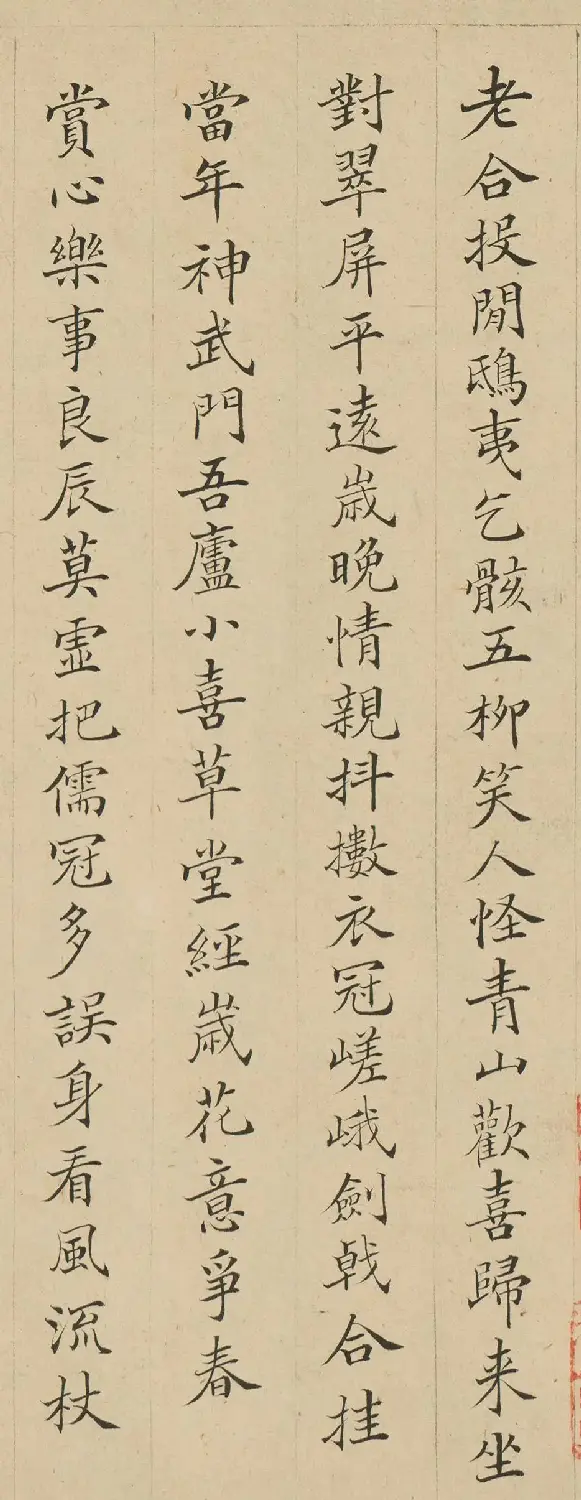 老合投閒鴟夷乞骸五柳笑人怪青山歡喜歸来坐
對翠屏平遠歲晚情親抖擻衣冠嵯峨劍戟合挂
當年神武門吾廬小喜草堂經歲花意爭春
賞心樂事良辰莫虛把儒冠多誤身看風流杖